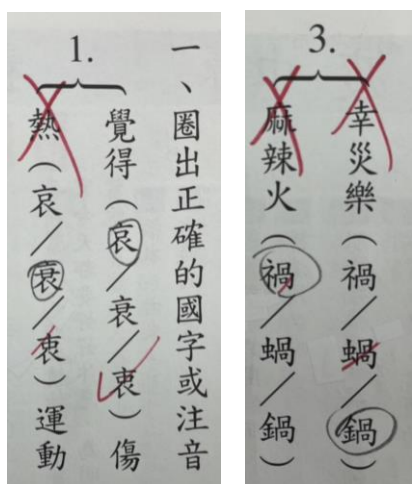 一、圈出正確的國字或注音
1.
覺得（哀／衰／衷）傷
熱（哀／衰／衷）運動
3.
幸災樂（禍／蝸／鍋）
麻辣火（禍／蝸／鍋）